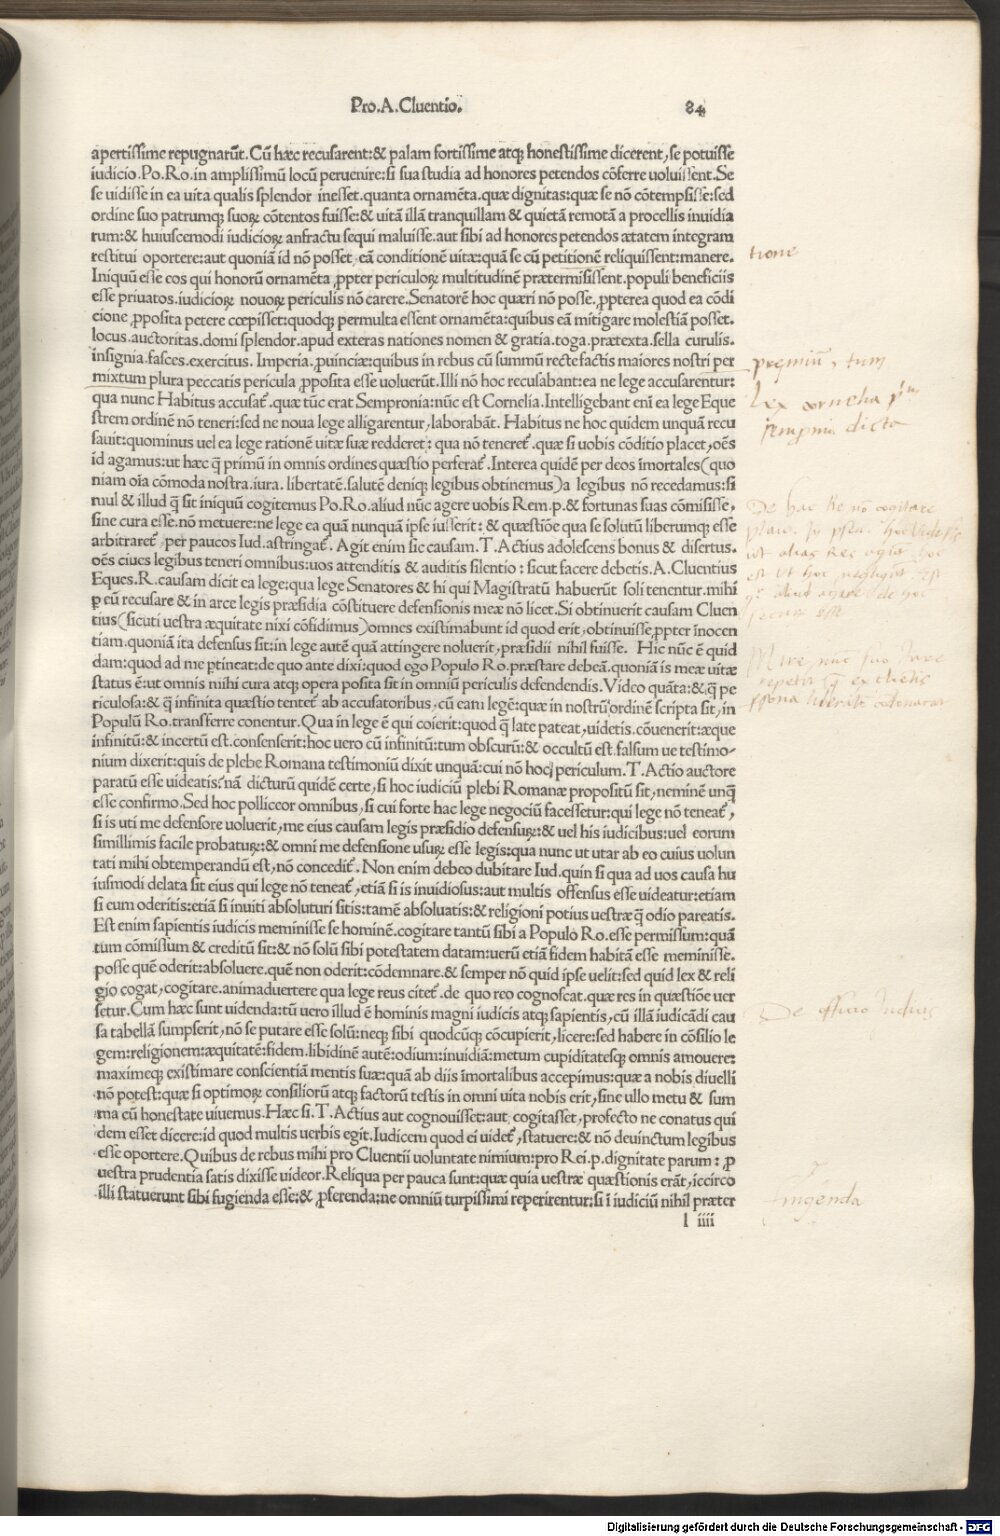 Pro.A.Cluentio. 84
apertissime repugnarūt.Cū hæc recusarent:& palam fortissime atq; honestissime dicerent,se potuisse
iudicio.Po.Ro.in amplissimū locū peruenire:si sua studia ad honores petendos cōferre uoluissent.Se
se uidisse in ea uita qualis splendor inesset.quanta ornamēta.quæ dignitas:quæ se nō cōtempsisse:sed
ordine suo patrumq; suoꝝ cōtentos fuisse:& uitā illā tranquillam & quietā remotā a procellis inuidia
rum:& huiuscemodi iudicioꝝ anfractu sequi maluisse.aut sibi ad honores petendos ætatem integram
restitui oportere:aut quoniā id nō posset,eā conditionē uitæ:quā se cū petitionē reliquissent:manere.
Iniquū esse eos qui honorū ornamēta ꝓpter periculoꝝ multitudinē prætermisissent.populi beneficiis
esse priuatos.iudicioꝝ nouoꝝ periculis nō carere.Senatorē hoc quæri nō posse.ꝓpterea quod ea cōdi
cione ꝓposita petere cœpisset:quodq; permulta essent ornamēta:quibus eā mitigare molestiā posset.
locus.auctoritas.domi splendor.apud exteras nationes nomen & gratia.toga.prætexta.sella curulis.
insignia.fasces.exercitus. Imperia.ꝓuinciæ:quibus in rebus cū summū recte factis maiores nostri per
mixtum plura peccatis pericula ꝓposita esse uoluerūt.Illi nō hoc recusabant:ea ne lege accusarentur:
qua nunc Habitus accusat᷑.quæ tūc erat Sempronia:nūc est Cornelia.Intelligebant enī ea lege Eque
strem ordinē nō teneri:sed ne noua lege alligarentur,laborabāt. Habitus ne hoc quidem unquā recu
sauit:quominus uel ea lege rationē uitæ suæ redderet: qua nō teneret᷑.quæ si uobis cōditio placet,oēs
id agamus:ut hæc q̄ primū in omnis ordines quæstio perferat᷑.Interea quidē per deos īmortales(quo
niam oīa cōmoda nostra.iura. libertatē.salutē deniq; legibus obtinemus)a legibus nō recedamus:si
mul & illud q̄ sit iniquū cogitemus Po.Ro.aliud nūc agere uobis Rem.p.& fortunas suas cōmisisse,
sine cura esse.nō metuere:ne lege ea quā nunquā ipse iusserit: & quæstiōe qua se solutū liberumq; esse
arbitraret᷑,per paucos Iud.astringat᷑. Agit enim sic causam.T.Actius adolescens bonus & disertus.
oēs ciues legibus teneri omnibus:uos attenditis & auditis silentio : sicut facere debetis.A.Cluentius
Eques.R.causam dicit ea lege:qua lege Senatores & hi qui Magistratū habuerūt soli tenentur.mihi
ꝑ eū recusare & in arce legis præsidia cōstituere defensionis meæ nō licet.Si obtinuerit causam Cluen
tius(sicuti uestra æquitate nixi cōfidimus)omnes existimabunt id quod erit,obtinuisse,ꝓpter īnocen
tiam.quoniā ita defensus sit:in lege autē quā attingere noluerit,præsidii nihil fuisse. Hic nūc ē quid
dam:quod ad me ꝑtineat:de quo ante dixi:quod ego Populo Ro.præstare debeā.quoniā is meæ uitæ
status ē:ut omnis mihi cura atq; opera posita sit in omniū periculis defendendis.Video quāta:& q̄ pe
riculosa:& q̄ infinita quæstio tentet᷑ ab accusatoribus,cū eam legē:quæ in nostrū ordinē scripta sit,in
Populū Ro.transferre conentur.Qua in lege ē qui coierit:quod q̄ late pateat,uidetis.cōuenerit:æque
infinitū:& incertū est.consenserit:hoc uero cū infinitū:tum obscurū:& occultū est.falsum ue testimo-
nium dixerit:quis de plebe Romana testimoniū dixit unquā:cui nō hoc periculum.T.Actio auctore
paratū esse uideatis?nā dicturū quidē certe,si hoc iudiciū plebi Romanæ propositū sit,neminē unq̄
esse confirmo.Sed hoc polliceor omnibus,si cui forte hac lege negociū facessetur:qui lege nō teneat᷑,
si is uti me defensore uoluerit,me eius causam legis præsidio defensuꝝ:& uel his iudicibus:uel eorum
simillimis facile probatuꝝ:& omni me defensione usuꝝ esse legis:qua nunc ut utar ab eo cuius uolun
tati mihi obtemperandū est,nō concedit᷑. Non enim debeo dubitare Iud.quin si qua ad uos causa hu
iusmodi delata sit eius qui lege nō teneat᷑,etiā si is inuidiosus:aut multis offensus esse uideatur:etiam
si eum oderitis:etiā si inuiti absoluturi sitis:tamē absoluatis:& religioni potius uestræ q̄ odio pareatis.
Est enim sapientis iudicis meminisse se hominē.cogitare tantū sibi a Populo Ro.esse permissum:quā
tum cōmissum & creditū sit:& nō solū sibi potestatem datam:uerū etiā fidem habitā esse meminisse.
posse quē oderit:absoluere.quē non oderit:cōdemnare.& semper nō quid ipse uelit:sed quid lex & reli
gio cogat,cogitare.animaduertere qua lege reus citet᷑.de quo reo cognoscat.quæ res in quæstiōe uer
setur.Cum hæc sunt uidenda:tū uero illud ē hominis magni iudicis atq; sapientis,cū illā iudicādi cau
sa tabellā sumpserit,nō se putare esse solū:neq; sibi quodcūq; cōcupierit,licere:sed habere in cōsilio le
gem:religionem:æquitatē:fidem.libidinē autē:odium:inuidiā:metum cupiditatesq; omnis amouere:
maximeq; existimare conscientiā mentis suæ:quā ab diis īmortalibus accepimus:quæ a nobis diuelli
nō potest:quæ si optimoꝝ consiliorū atq; factorū testis in omni uita nobis erit,sine ullo metu & sum
ma cū honestate uiuemus.Hæc si.T.Actius aut cognouisset:aut cogitasset,profecto ne conatus qui
dem esset dicere:id quod multis uerbis egit.Iudicem quod ei uidet᷑,statuere:& nō deuinctum legibus
esse oportere.Quibus de rebus mihi pro Cluentii uoluntate nimium:pro Rei.p.dignitate parum: ꝓ
uestra prudentia satis dixisse uideor.Reliqua per pauca sunt:quæ quia uestræ quæstionis erāt,iccirco
illi statuerunt sibi fugienda esse:& ꝓferenda:ne omniū turpissimi reperirentur:si ī iudiciū nihil præter
l iiii
tione
premiū, tum
Lex cornelia
dicta
De hac Re nō cogitare
De officio Iudicis
fingenda
Digitalisierung gefördert durch die Deutsche Forschungsgemeinschaft - DFG